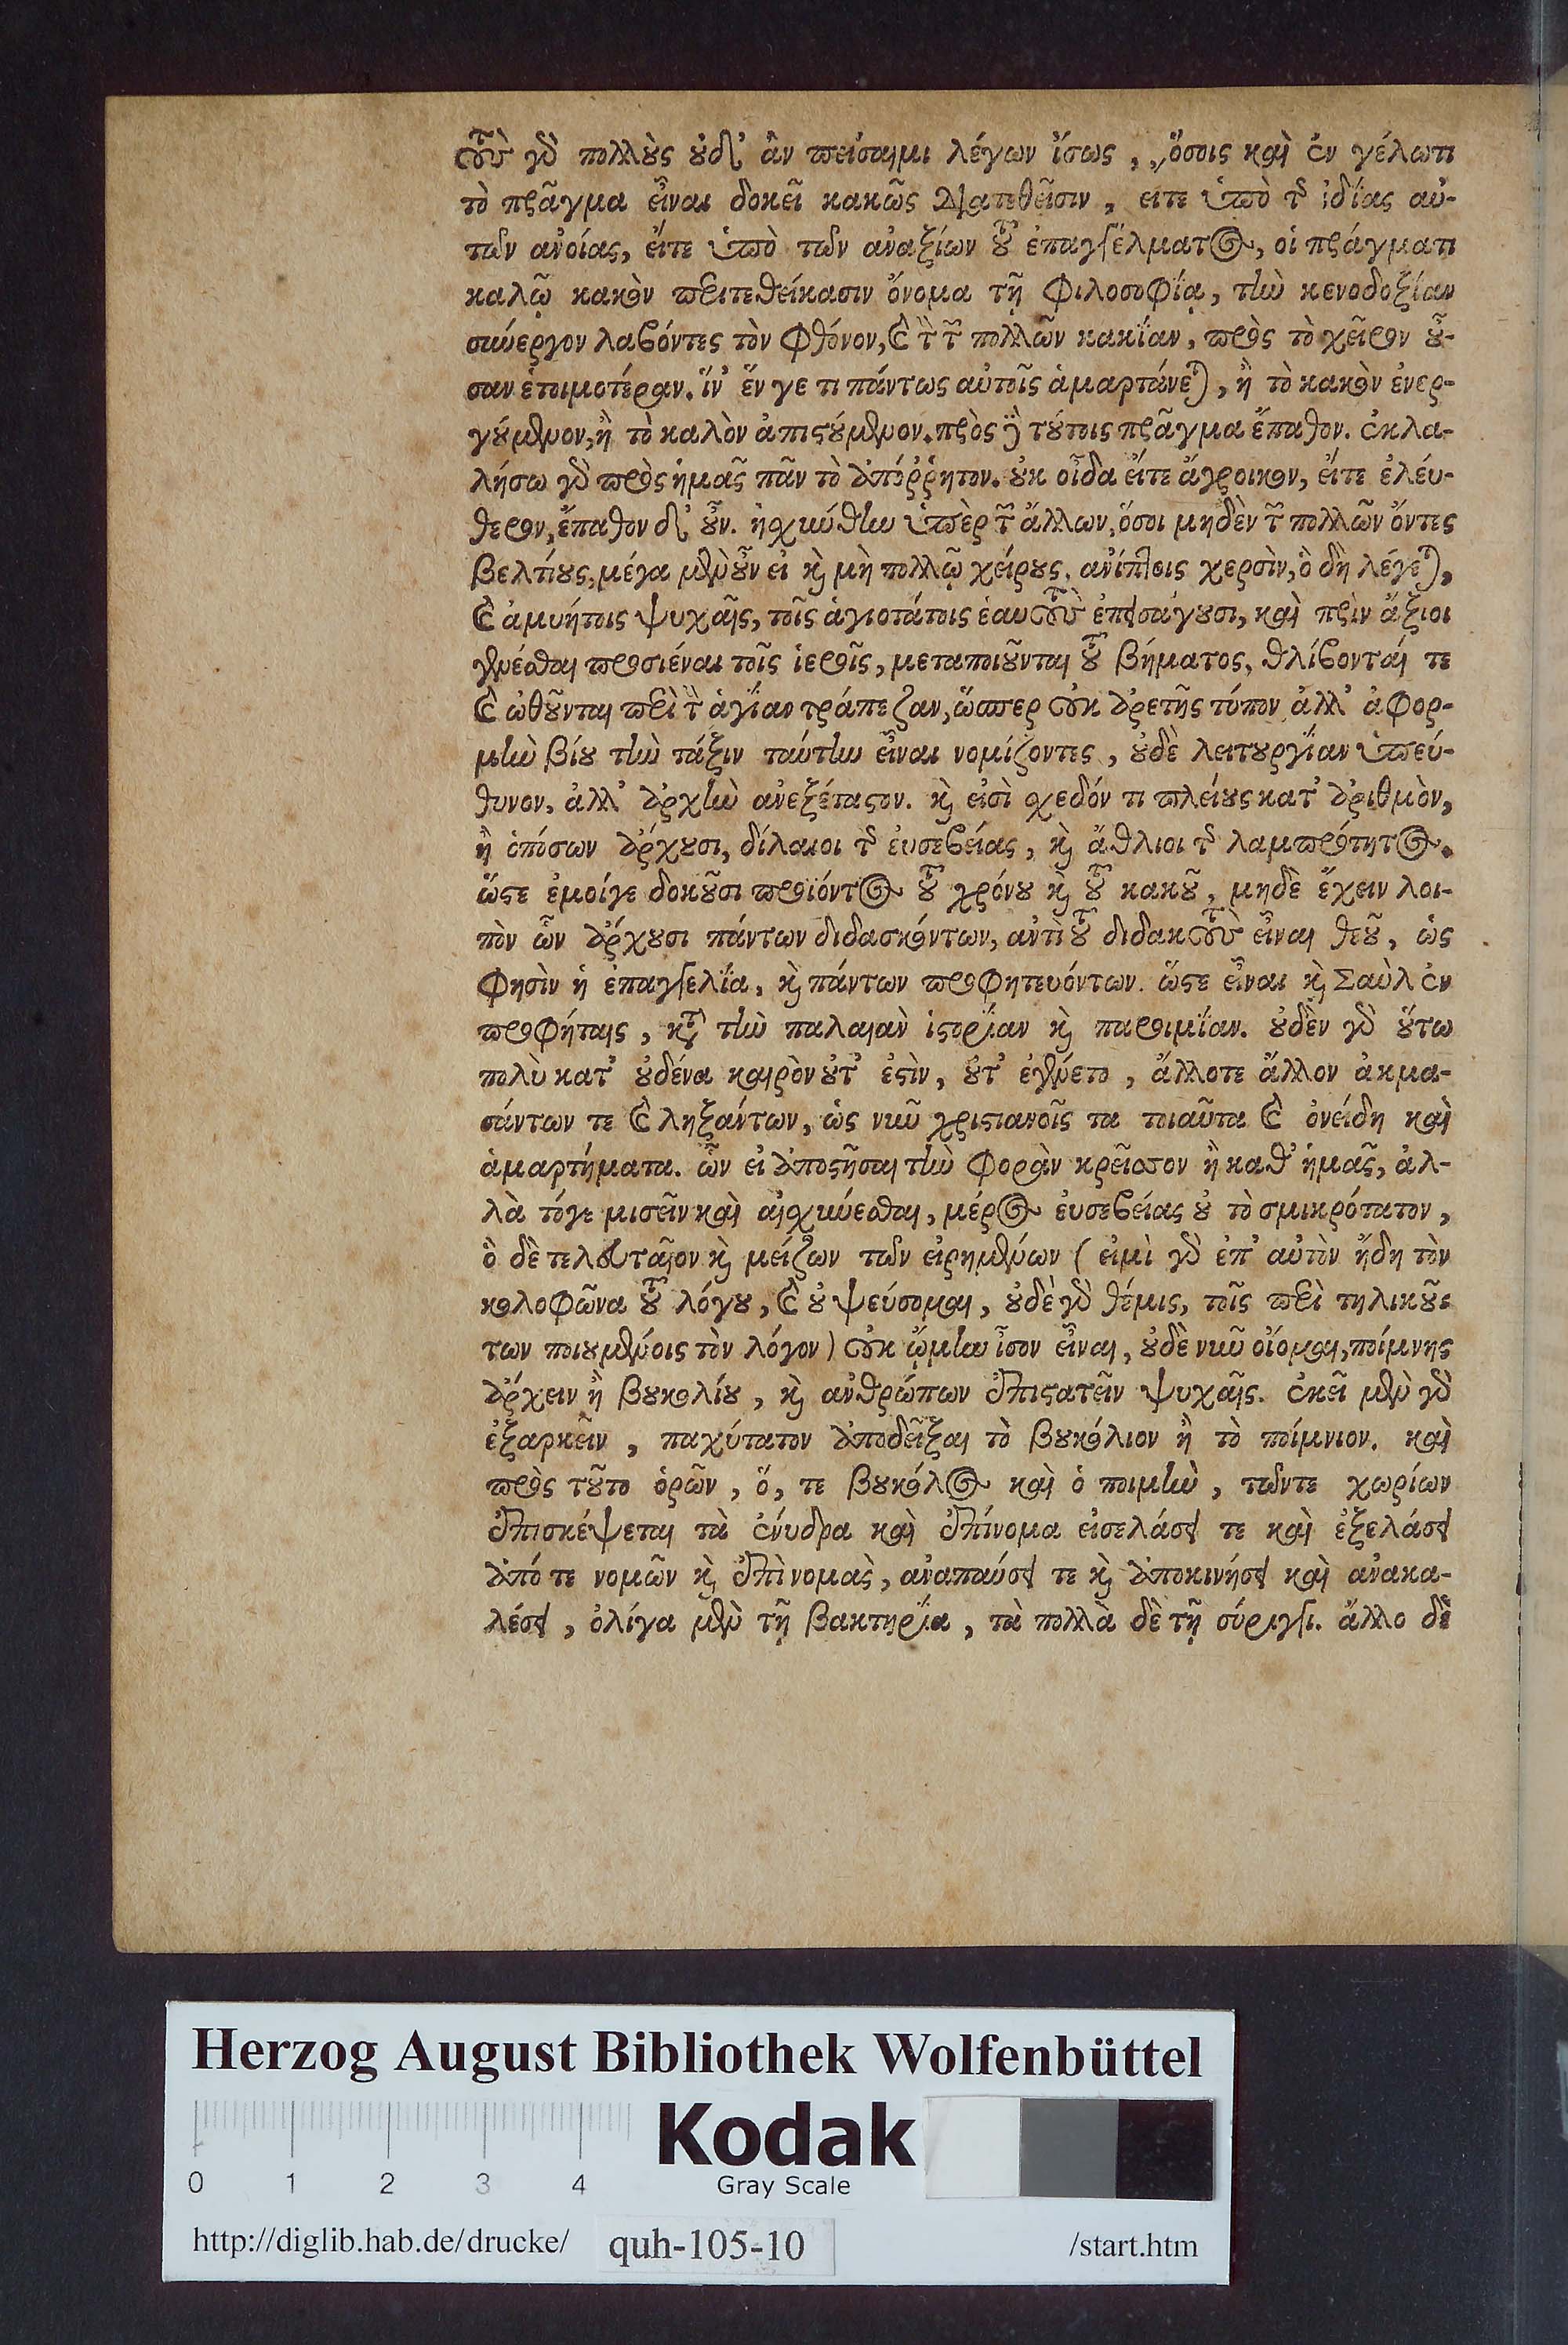 τοὺς γὰρ πολλοὺς οὐδ' ἂν πείσαιμι λέγων ἴσως, ὅσοις καὶ ἐν γέλωτι
τὸ πρᾶγμα εἶναι δοκεῖ κακῶς διατεθεῖσιν, εἴτε ὑπὸ τῆς ἰδίας αὐ-
τῶν ἀνοίας, εἴτε ὑπὸ τῶν ἀναξίων τοῦ ἐπαγγέλματος, οἱ πράγματι
καλῷ κακὸν περιτεθείκασιν ὄνομα τῇ φιλοσοφίᾳ, τὴν κενοδοξίαν
συνεργον λαβόντες τὸν φθόνον, καὶ τὴν τῶν πολλῶν κακίαν, πρὸς τὸ χεῖρον οὖ-
σαν ἑτοιμοτέραν. ἵν' ἕν γε τι πάντως αὐτοῖς ἁμαρτάνεται, ἢ τὸ κακὸν ἐνερ-
γούμενον, ἢ τὸ καλὸν ἀπιστούμενον. πρὸς δὲ τούτοις πρᾶγμα ἔπαθον. ἐκλα-
λήσω γὰρ πρὸς ἡμᾶς πᾶν τὸ ἀπόῤῥητον. οὐκ οἶδα εἴτε ἄγροικον, εἴτε ἐλεύ-
θερον, ἔπαθον δ' οὖν. ᾐσχύνθην ὑπὲρ τῶν ἄλλων, ὅσοι μηδὲν τῶν πολλῶν ὄντες
βελτίους, μέγα μὲν οὖν εἰ καὶ μὴ πολλῷ χείρους, ἀνίπτοις χερσὶν, ὃ δὴ λέγεται,
καὶ ἀμυήτοις ψυχαῖς, τοῖς ἁγιοτάτοις ἑαυτοὺς ἐπεισάγουσι, καὶ πρὶν ἄξιοι
γενέσθαι προσιέναι τοῖς ἱεροῖς, μεταποιοῦνται τοῦ βήματος, θλίβονταί τε
καὶ ὠθοῦνται περὶ τὴν ἁγίαν τράπεζαν, ὥσπερ οὐκ ἀρετῆς τύπον ἀλλ' ἀφορ-
μὴν βίου τὴν τάξιν ταύτην εἶναι νομίζοντες, οὐδὲ λειτουργίαν ὑπεύ-
θυνον, ἀλλ' ἀρχὴν ἀνεξέταστον. καὶ εἰσὶ σχεδόν τι πλείους κατ' ἀριθμὸν,
ἢ ὁπόσων ἄρχουσι, δίλαιοι τῆς εὐσεβείας, καὶ ἄθλιοι τῆς λαμπρότητος.
ὥστε ἐμοίγε δοκοῦσι προϊόντος τοῦ χρόνου καὶ τοῦ κακοῦ, μηδὲ ἔχειν λοι-
πὸν ὧν ἄρχουσι πάντων διδασκόντων, ἀντὶ τοῦ διδακτοὺς εἶναι θεοῦ, ὡς
φησὶν ἡ ἐπαγγελία, καὶ πάντων προφητευόντων. ὥστε εἶναι καὶ Σαοὺλ ἐν
προφήταις, κατὰ τὴν παλαιὰν ἱστορίαν καὶ παροιμίαν. οὐδὲν γὰρ οὕτω
πολὺ κατ' οὐδένα καιρὸν οὔτ' ἐστὶν, οὔτ' ἐγένετο, ἄλλοτε ἄλλον ἀκμα-
σάντων τε καὶ ληξάντων, ὡς νῦν χριστιανοῖς τα τοιαῦτα καὶ ὀνείδη καὶ
ἁμαρτήματα. ὧν εἰ ἀποστῆσαι τὴν φορὰν κρεῖσσον ἢ καθ' ἡμᾶς, ἀλ-
λὰ τόγε μισεῖν καὶ αἰσχύνεσθαι, μέρος εὐσεβείας οὐ τὸ σμικρότατον,
ὃ δὲ τελευταῖον καὶ μείζων τῶν εἰρημένων (εἰμὶ γὰρ ἐπ' αὐτὸν ἤδη τὸν
κολοφῶνα τοῦ λόγου, καὶ οὐ ψεύσομαι, οὐδὲ γὰρ θέμις, τοῖς περὶ τηλικού-
των ποιουμένοις τὸν λόγον) οὐκ ᾤμην ἶσον εἶναι, οὐδὲ νῦν οἴομαι, ποίμνης
ἄρχειν ἢ βουκολίου, καὶ ἀνθρώπων ἐπιστατεῖν ψυχαῖς. ἐκεῖ μὲν γὰρ
ἐξαρκεῖν, παχύτατον ἀποδεῖξαι τὸ βουκόλιον ἢ τὸ ποίμνιον. καὶ
πρὸς τοῦτο ὁρῶν, ὅ, τε βουκόλος καὶ ὁ ποιμὴν, τῶντε χωρίων
ἐπισκέψεται τὰ ἔνυδρα καὶ ἐπίνομα εἰσελάσει τε καὶ ἐξελάσει
ἀπό τε νομῶν καὶ ἐπὶ νομὰς, ἀναπαύσει τε καὶ ἀποκινήσει καὶ ἀνακα-
λέσει, ὀλίγα μὲν τῇ βακτηρίᾳ, τὰ πολλὰ δὲ τῇ σύριγγι. ἄλλο δὲ
Herzog August Bibliothek Wolfenbüttel
Kodak
0 1 2 3 4 Gray Scale
http://diglib.hab.de/drucke/ quh-105-10 /start.htm